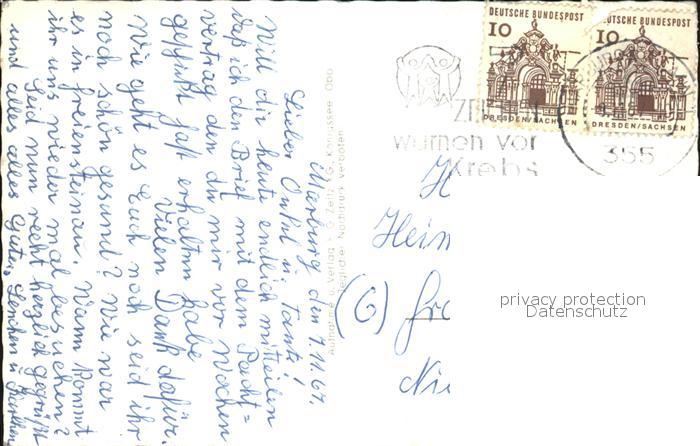 DEUTSCHE BUNDESPOST
10
DRESDEN/SACHSEN
DEUTSCHE BUNDESPOST
10
DRESDEN/SACHSEN
warnen vor
Krebs
355
Marburg, den 7.11.67.
Lieber Onkel u. Tante!
Will dir heute endlich mitteilen
daß ich den Brief mit dem Pacht=
vertrag den du mir vor Wochen
geschickt hast erhalten habe.
Vielen Dank dafür.
Wie geht es Euch noch seid ihr
noch schön gesund? Wie war
es in Freiensteinau. Wann kommt
ihr uns wieder mal besuchen?
Seid nun recht herzlich gegrüßt
und alles alles Gute,
Aufnahme u. Verlag G. Zeitz, G. Königssee Obb
Jeglicher Nachdruck verboten
H
Hein
(6) Gr
Nie
privacy protection
Datenschutz